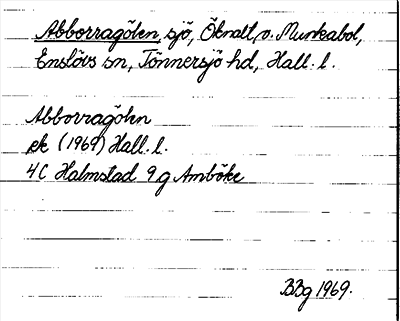 Abborragölen, sjö, Öknatt, v. Munkabol,
Enslövs sn, Tönnersjö hd, Hall. l.
Abborragöhn
ek (1969) Hall. l.
4C Halmstad 9g Amböke
BBg 1969.